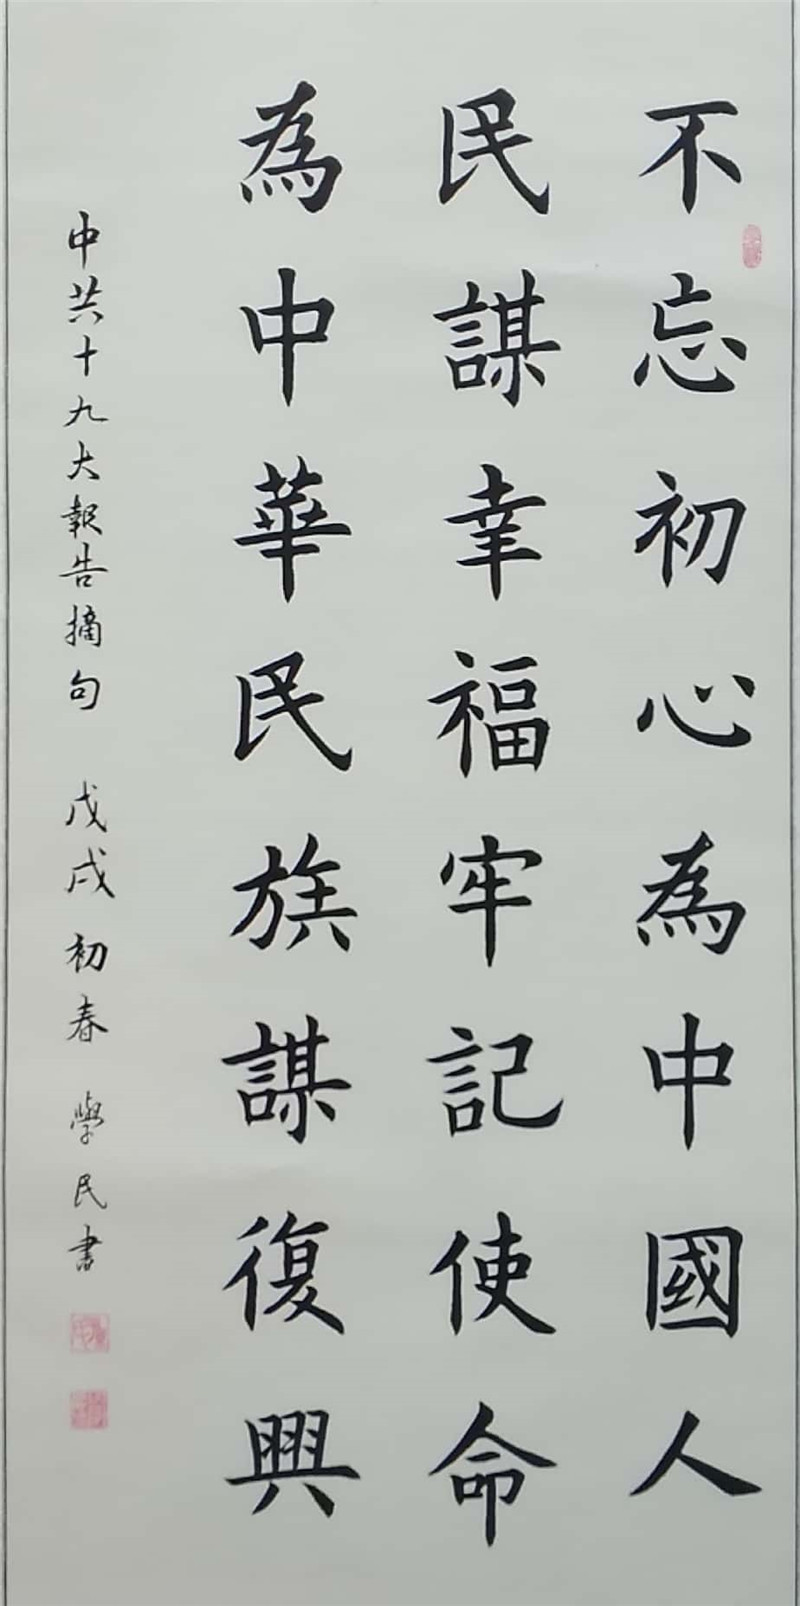 不忘初心為中國人
民謀幸福牢記使命
為中華民族謀復興
中共十九大報告摘句 戊戌初春 學民書